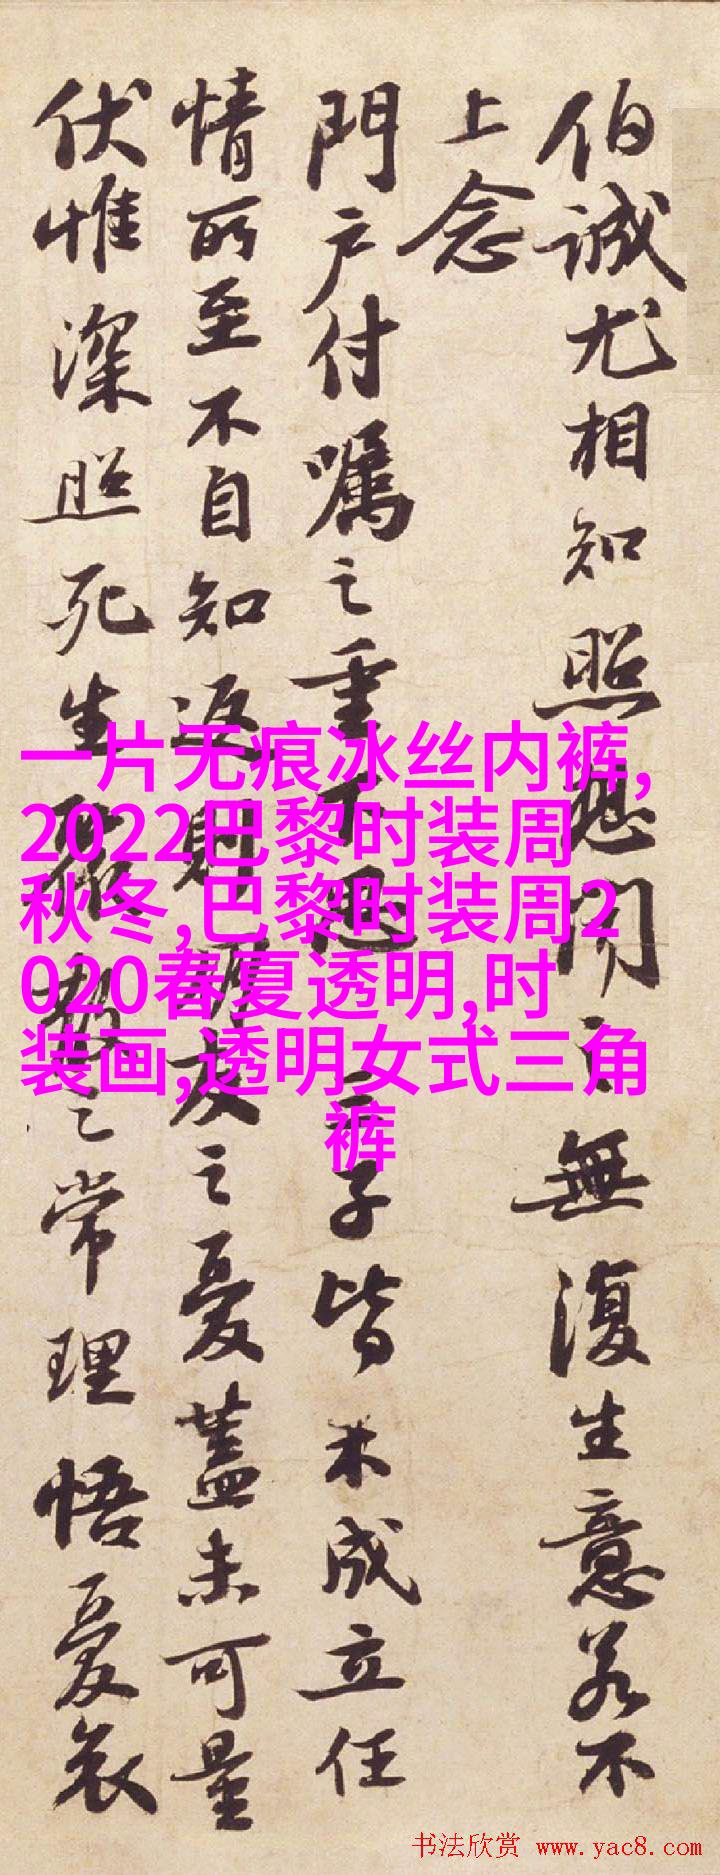 伯誠尤相知照想聞之無復生意若不
上念
門户付囑之重下思三子皆未成立任
情所至不自知返則朋友之憂蓋未可量
伏惟深照死生聚散之常理悟憂哀
一片无痕冰丝内裤,
2022巴黎时装周
秋冬,巴黎时装周2
020春夏透明,时
装画,透明女式三角
裤
书法欣赏 www.yac8.com